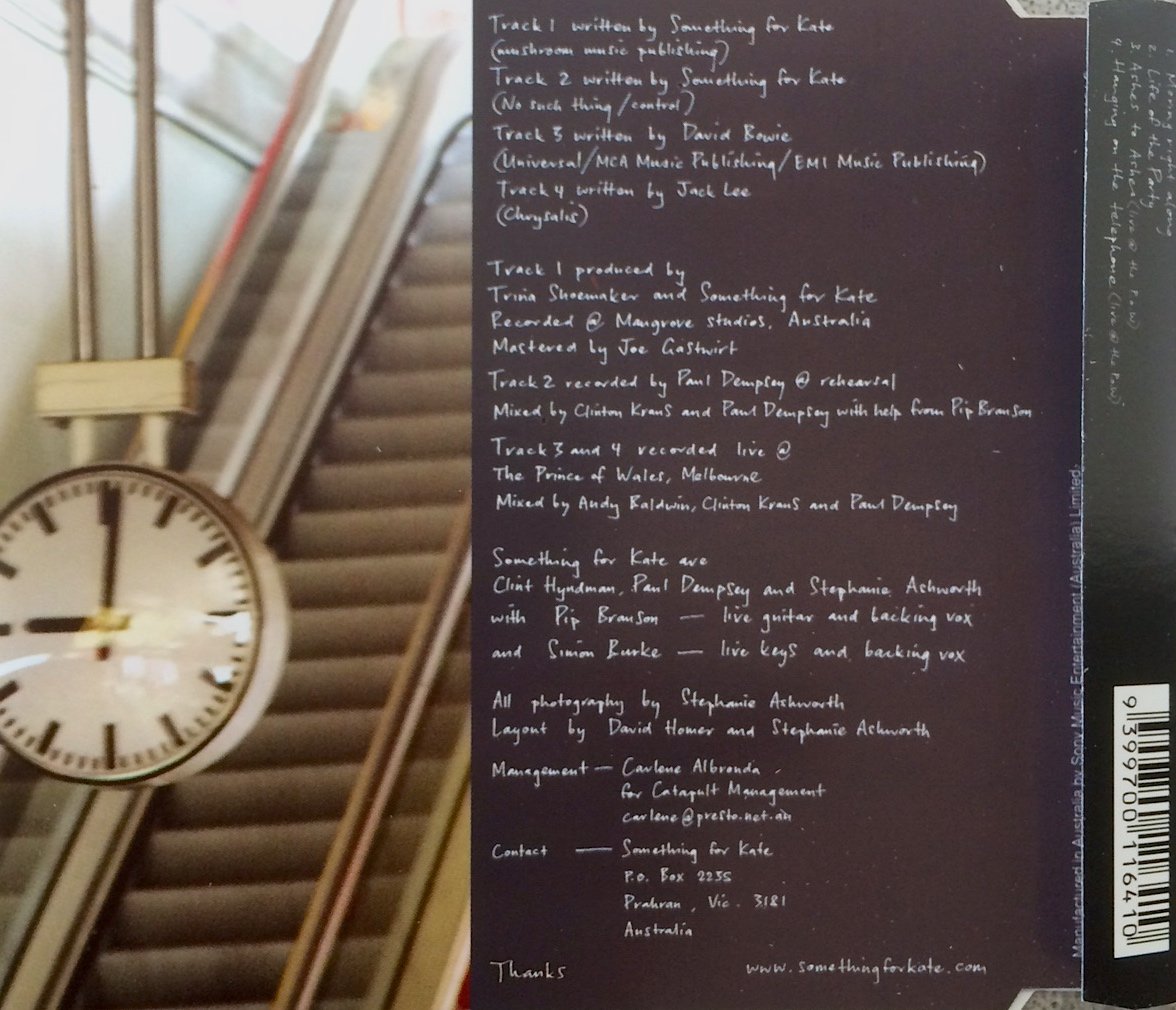 Track 1 written by Something for Kate
(mushroom music publishing)
Track 2 written by Something for Kate
(No such thing/control)
Track 3 written by David Bowie
(Universal/MCA Music Publishing/EMI Music Publishing)
Track 4 written by Jack Lee
(Chrysalis)
Track 1 produced by
Trina Shoemaker and Something for Kate
Recorded @ Mangrove studios, Australia
Mastered by Joe Gastwirt
Track 2 recorded by Paul Dempsey @ rehearsal
Mixed by Clinton Kraus and Paul Dempsey with help from Pip Branson
Track 3 and 4 recorded live @
The Prince of Wales, Melbourne
Mixed by Andy Baldwin, Clinton Kraus and Paul Dempsey
Something for Kate are
Clint Hyndman, Paul Dempsey and Stephanie Ashworth
with Pip Branson — live guitar and backing vox
and Simon Burke — live keys and backing vox
All photography by Stephanie Ashworth
Layout by David Homer and Stephanie Ashworth
Management — Carlene Albronda
for Catapult Management
carlene@presto.net.au
Contact — Something for Kate
P.O. Box 2235
Prahran, Vic. 3181
Australia
Thanks www.somethingforkate.com
Manufactured in Australia by Sony Music Entertainment (Australia) Limited.
2. Life of the Party
3. Ashes to Ashes (live @ the P.o.W)
4. Hanging on the telephone (live @ the P.o.W)
9 399700 116410